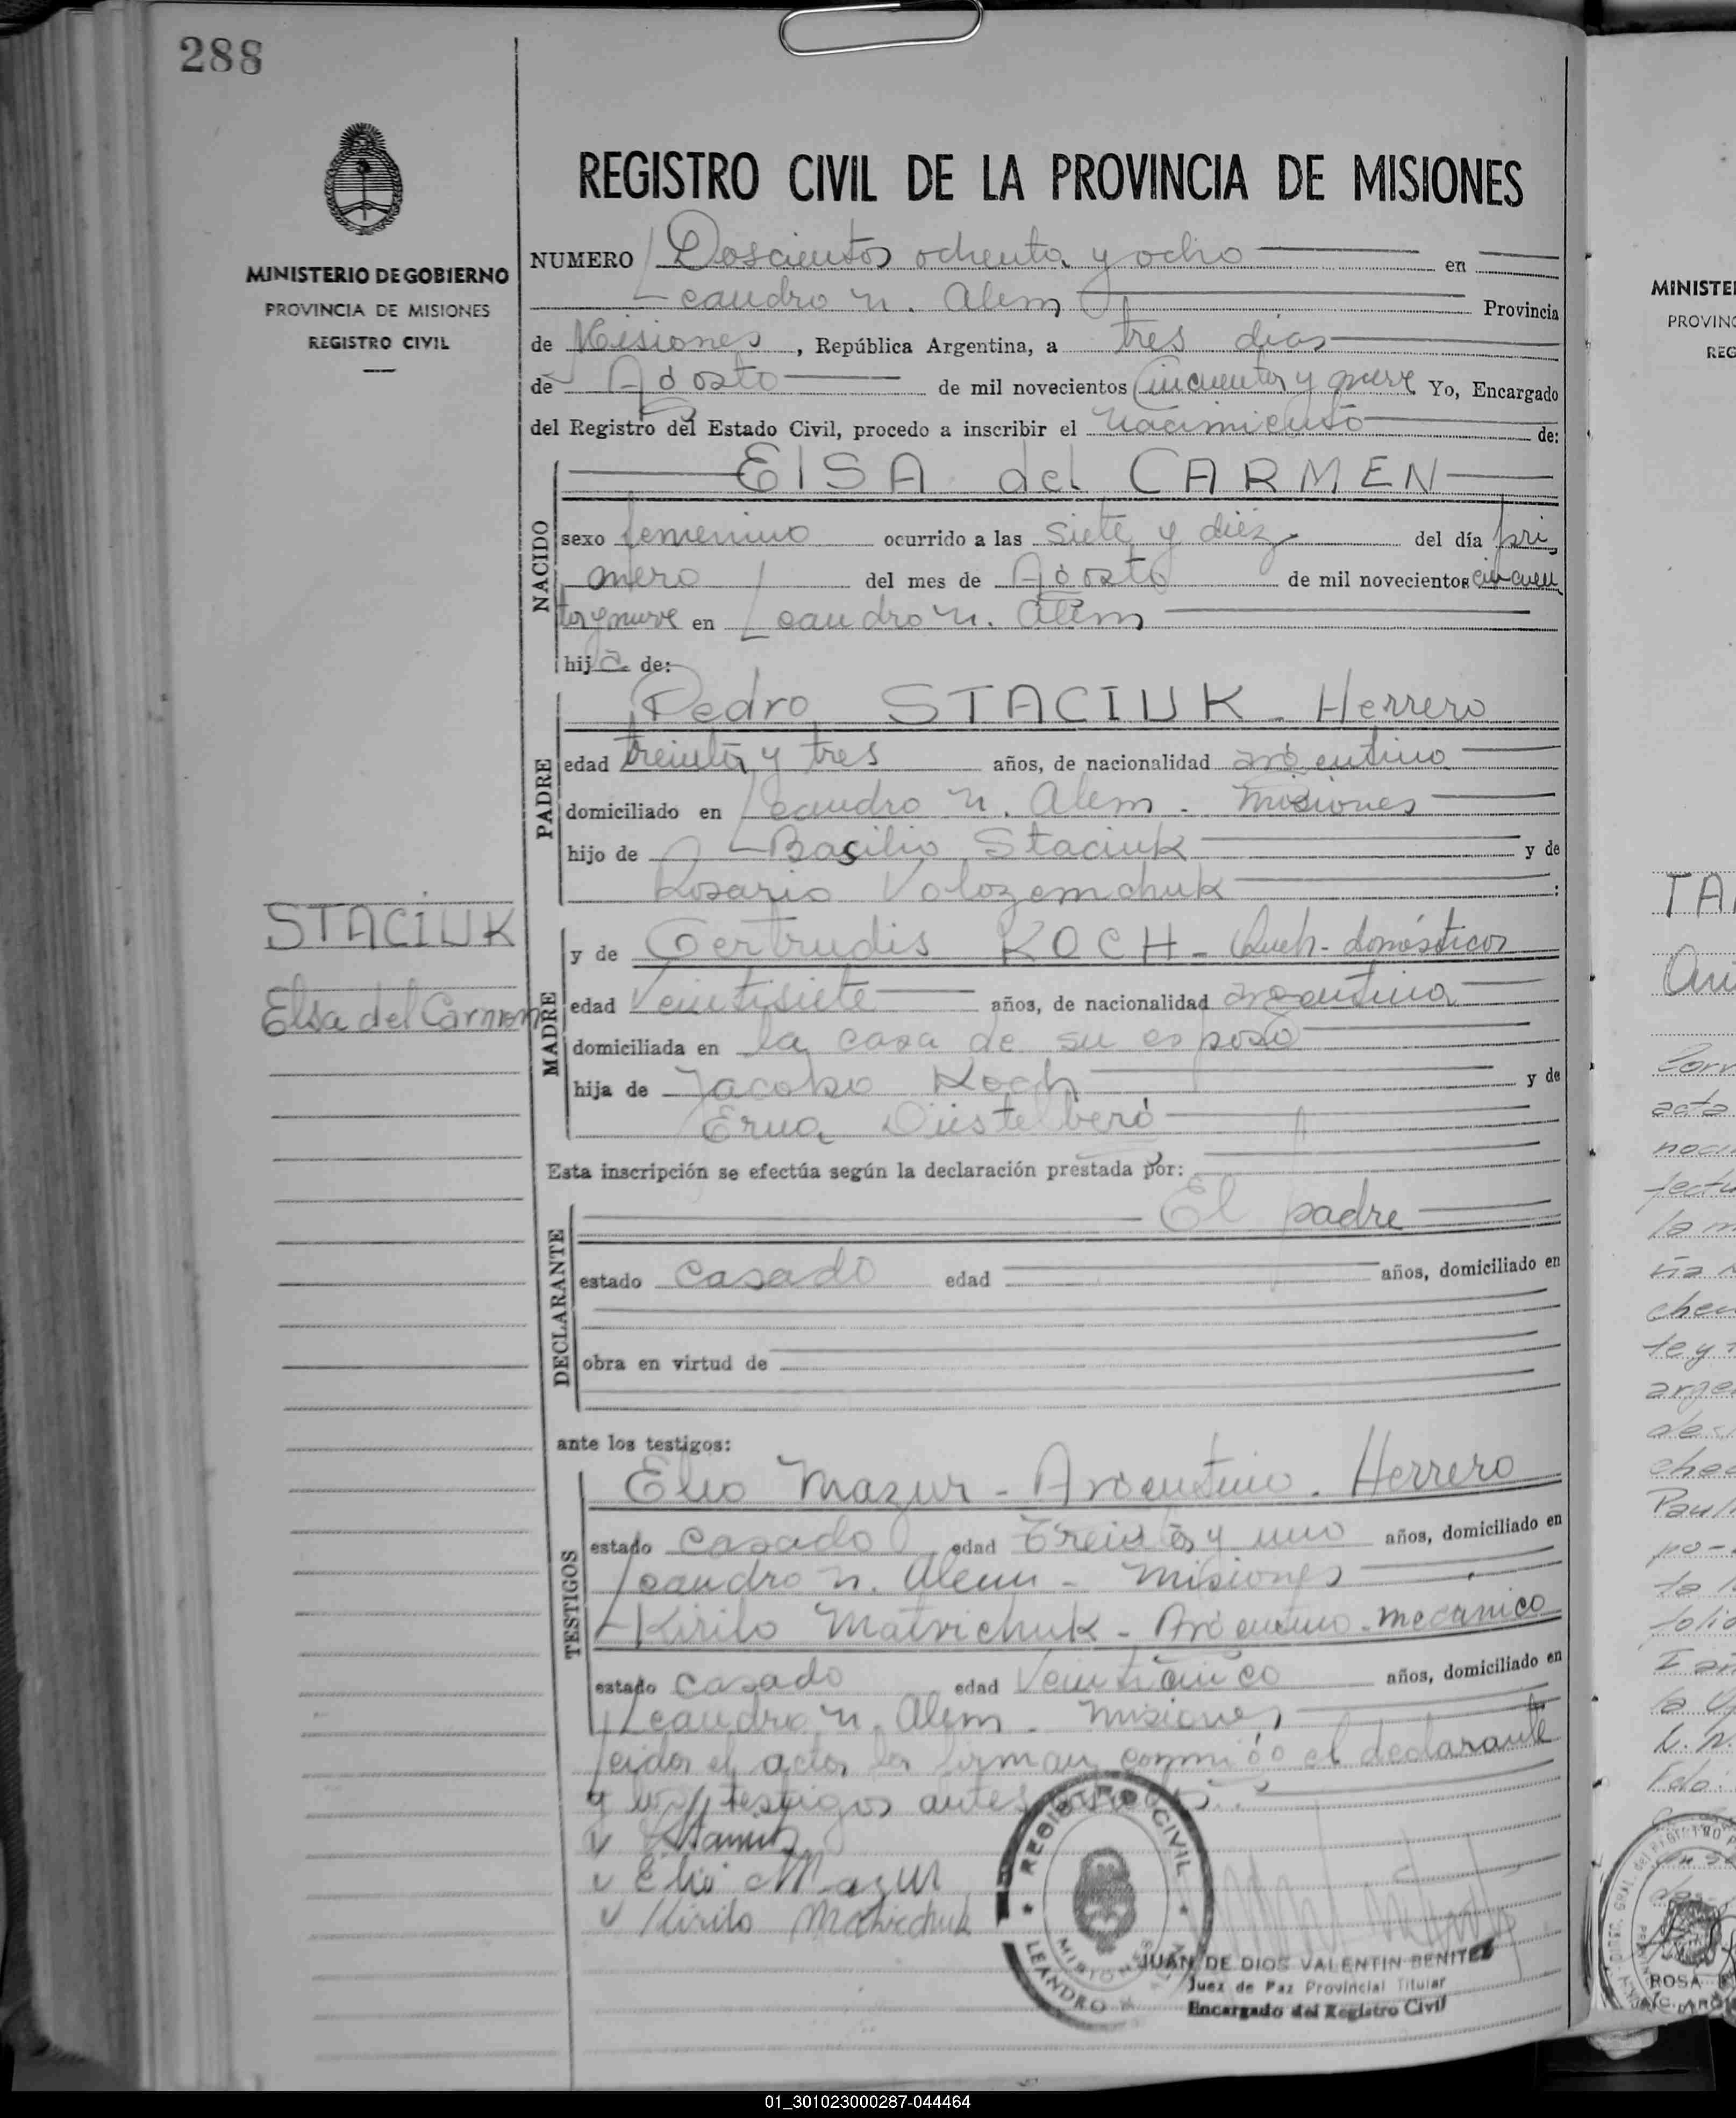 288
MINISTERIO DE GOBIERNO
PROVINCIA DE MISIONES
REGISTRO CIVIL
STACIUK
Elsa del Carmen
REGISTRO CIVIL DE LA PROVINCIA DE MISIONES
NUMERO Doscientos ochenta y ocho en
Leandro N. Alem Provincia
de Misiones, República Argentina, a tres días
de Agosto de mil novecientos Cincuenta y nueve Yo, Encargado
del Registro del Estado Civil, procedo a inscribir el nacimiento de:
NACIDO
ElSA del CARMEN
sexo femenino ocurrido a las siete y diez del día pri
mero del mes de Agosto de mil novecientos cincuen
ta y nueve en Leandro N. Alem
hija de:
PADRE
Pedro STACIUK - Herrero
edad treinta y tres años, de nacionalidad argentino
domiciliado en Leandro N. Alem - Misiones
hijo de Basilio Staciuk y de
Rosario Volozemchuk :
MADRE
y de Gertrudis KOCH - Queh- domésticos
edad Veintisiete años, de nacionalidad argentina
domiciliada en la casa de su esposo
hija de Jacobo Koch y de
Erna Düstelberg
Esta inscripción se efectúa según la declaración prestada por:
DECLARANTE
El padre
estado casado edad años, domiciliado en
obra en virtud de
ante los testigos:
TESTIGOS
Elio Mazur - Argentino - Herrero
estado casado edad Treinta y uno años, domiciliado en
Leandro N. Alem - Misiones
Kirilo Matvichuk - Argentino - mecánico
estado casado edad Veinticinco años, domiciliado en
Leandro N. Alem - Misiones
Leída el acta la firman conmigo el declarante
y los testigos antes
Elio Mazur
Kirilo Matvichuk
REGISTRO CIVIL
MISIONES
LEANDRO N. ALEM
JUAN DE DIOS VALENTIN BENITEZ
Juez de Paz Provincial Titular
Encargado del Registro Civil
MINISTE
PROVINC
REG
TA
acta
Paul
ROSA
01_301023000287-044464